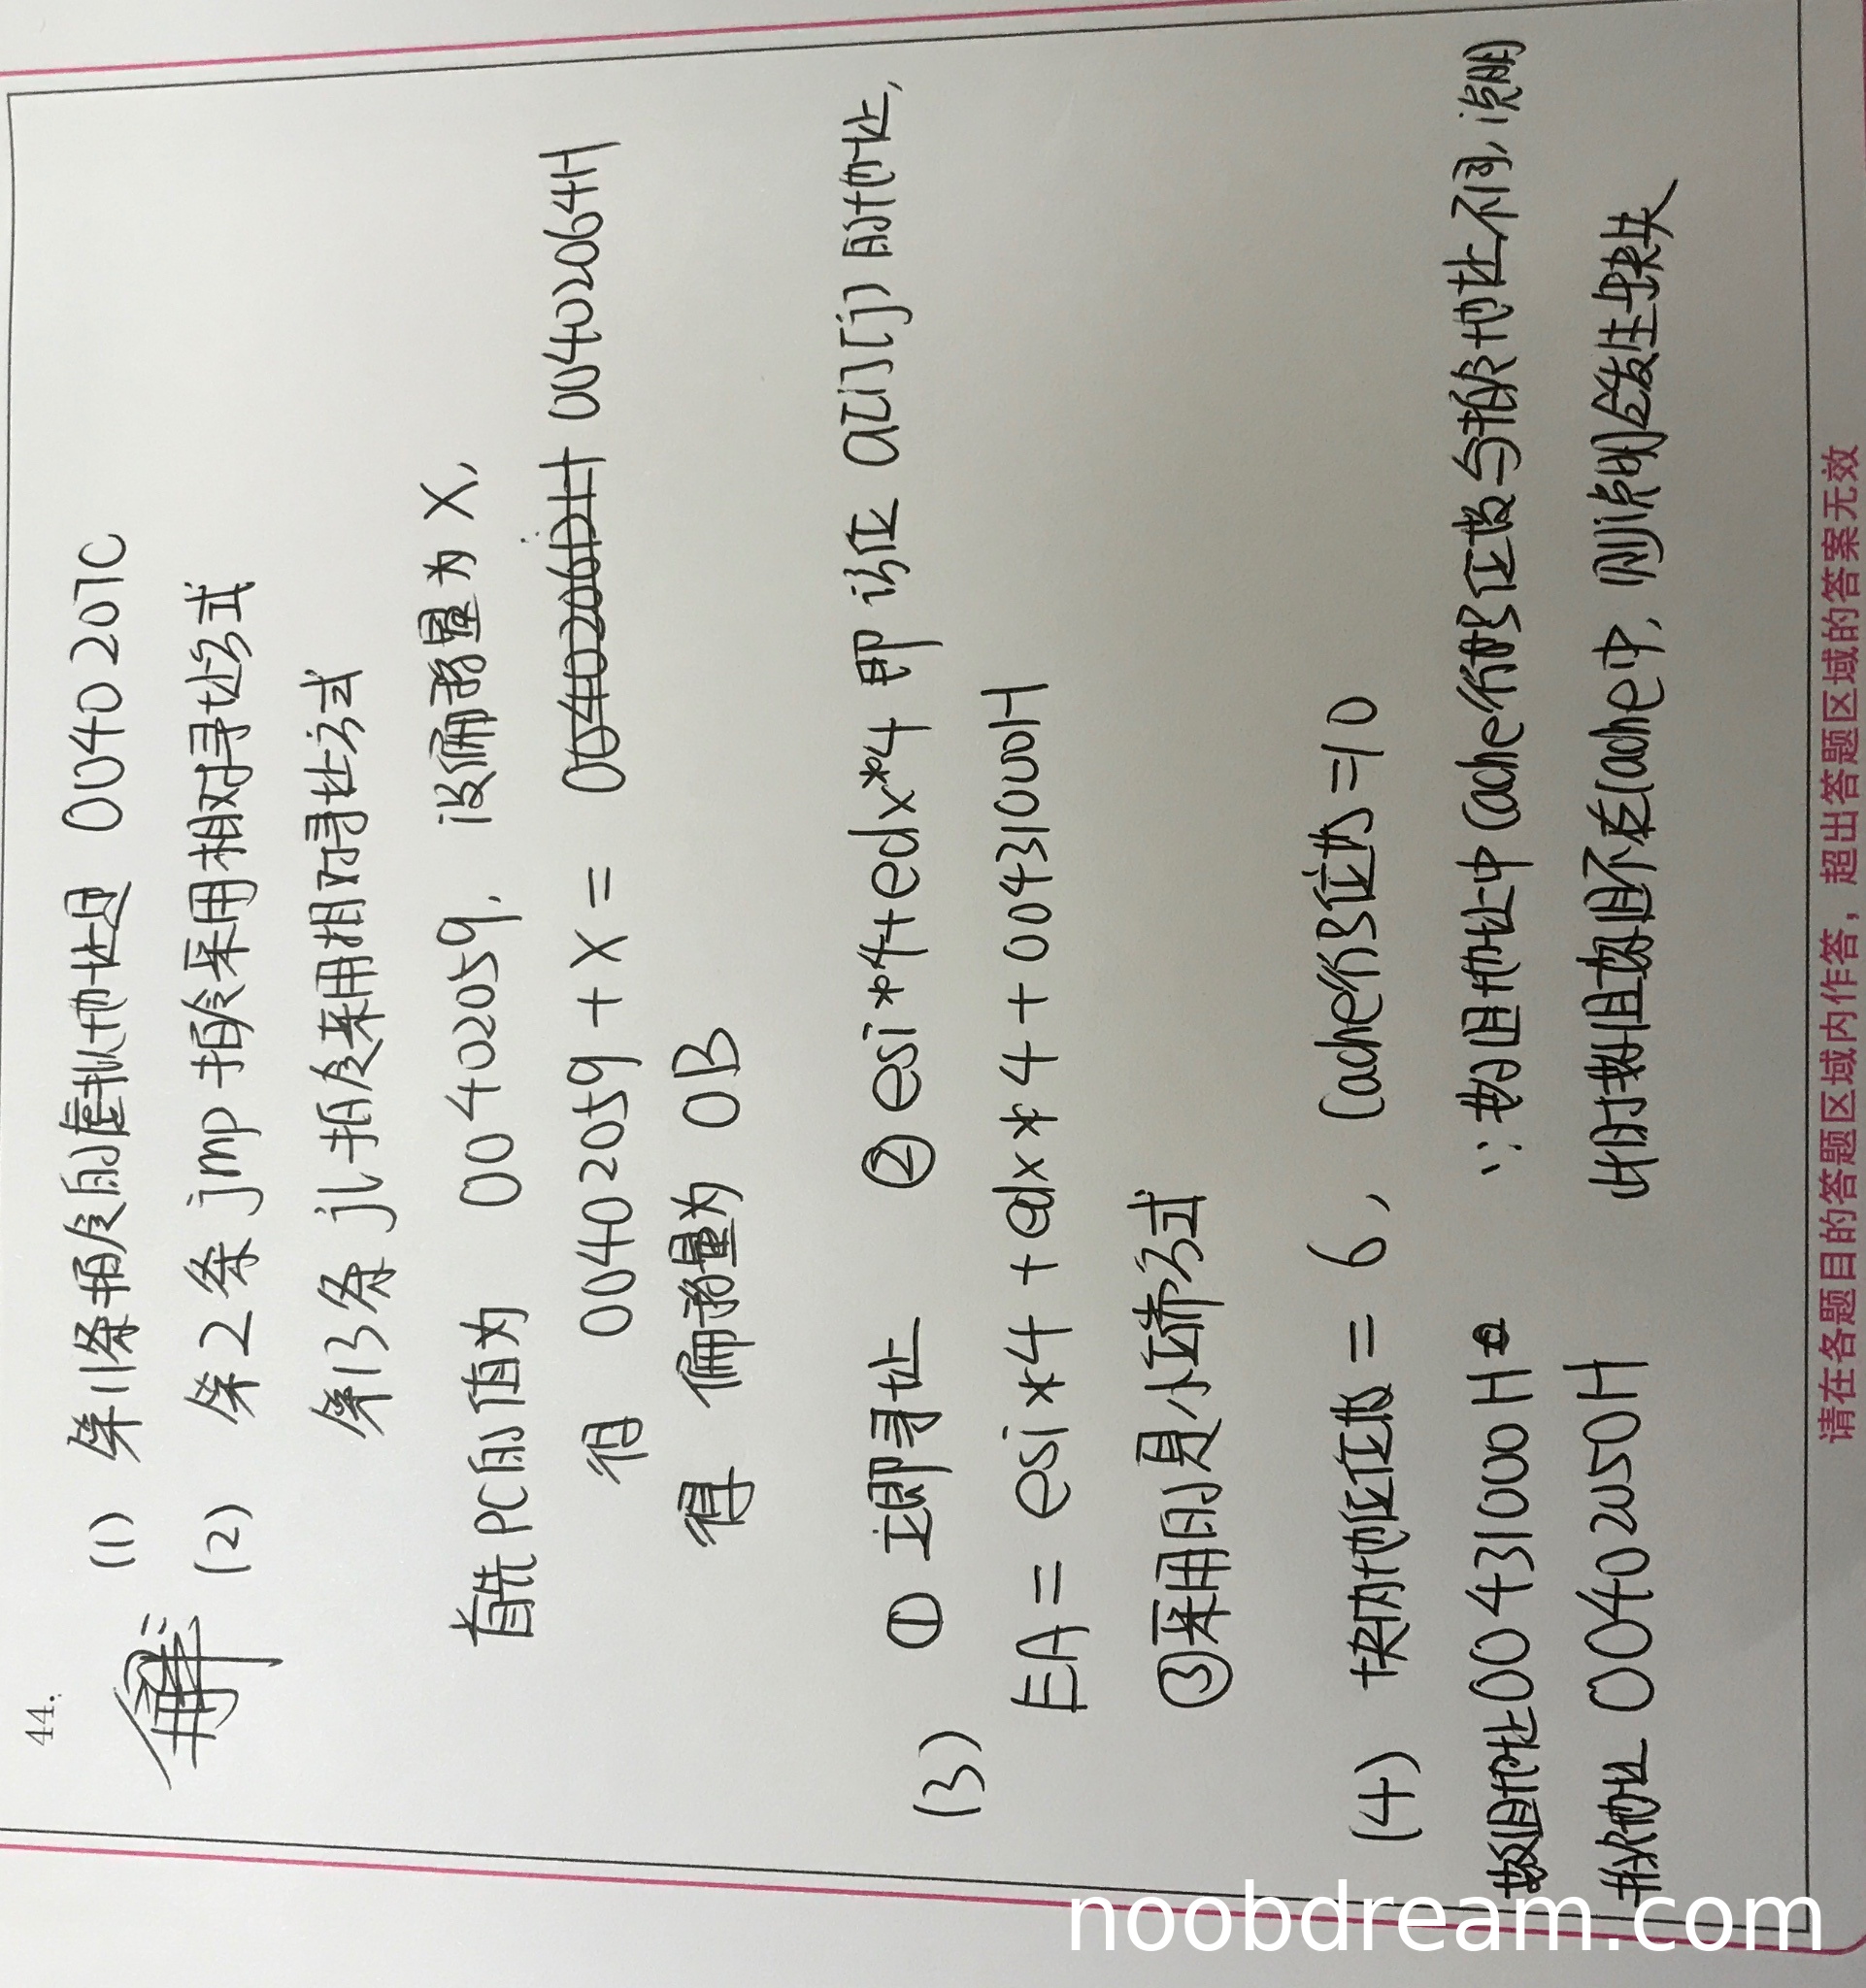 44.
解：
(1) 第11条指令的虚拟地址是 0040 207C
(2) 第2条 jmp 指令采用相对寻址方式
第13条 jl 指令采用相对寻址方式
首先PC的值为 00402059, 设偏移量为X,
得 00402059 + X = 00402064H
得 偏移量为 0B
(3) ① 立即寻址 ② esi*4+edx*4 即 访位 a[i][j] 的地址,
EA = esi*4 + edx*4 + 00431000H
③采用的是小端方式
(4) 块内地址位数 = 6, Cache行号位数=10
数组地址00431000H ∵ 数组地址中Cache行的位数与指令地址不同, 说明
指令地址 00402050H 此时数组数组不在Cache中, 则说明会发生缺失
请在各题目的答题区域内作答，超出答题区域的答案无效
noobdream.com